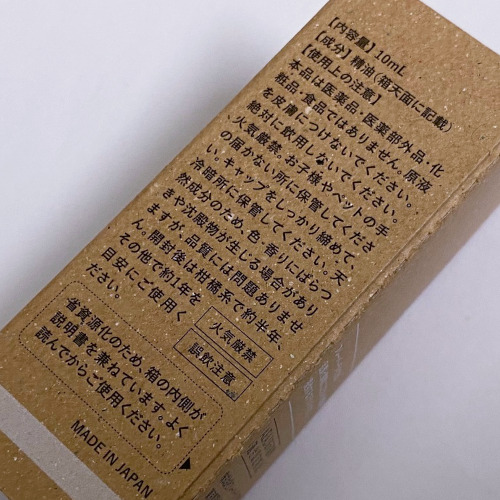 【内容量】10mL
【成分】精油(箱天面に記載)
【使用上の注意】
本品は医薬品・医薬部外品・化
粧品・食品ではありません。原液
を皮膚につけないでください。
絶対に飲用しないでください。
火気厳禁。お子様やペットの手
の届かない所に保管してくださ
い。キャップをしっかり締めて、
冷暗所に保管してください。天
然成分のため、色・香りにばらつ
きや沈殿物が生じる場合があり
ますが、品質には問題ありませ
ん。開封後は柑橘系で約半年、
その他で約1年を
目安にご使用く
ださい。
火気厳禁
誤飲注意
省資源化のため、箱の内側が
説明書を兼ねています。よく
読んでからご使用ください。
MADE IN JAPAN